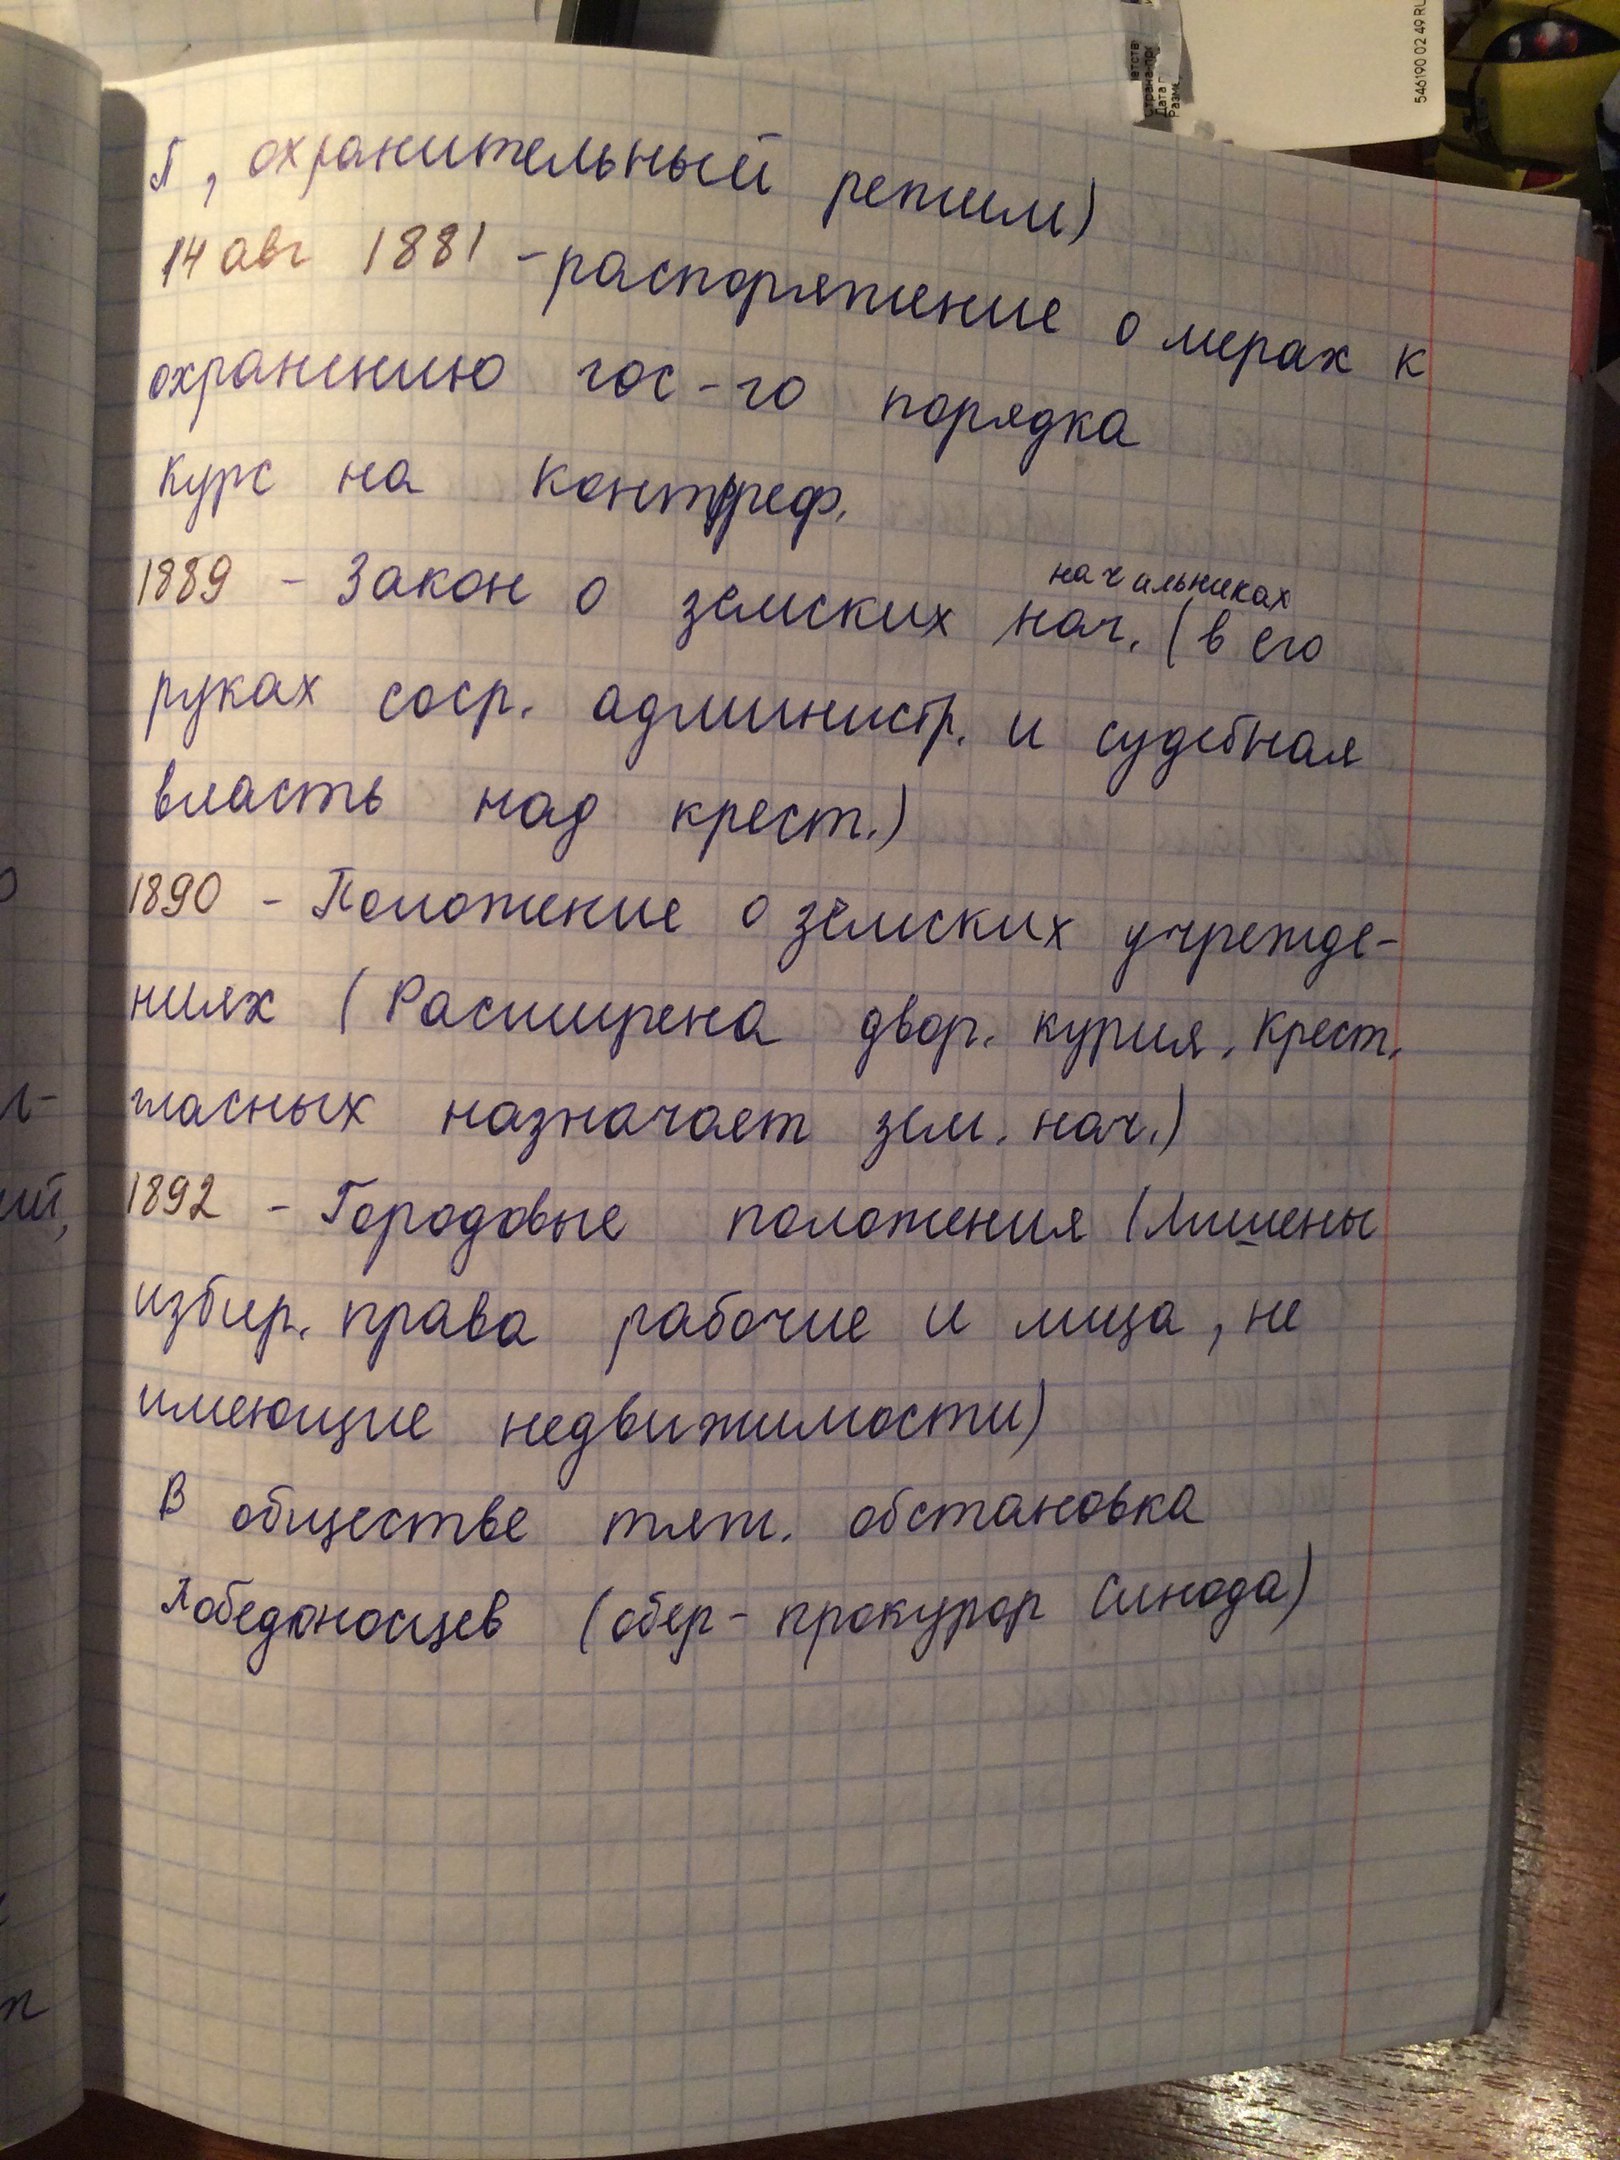 546190 02 49 RU
, охранительный режим)
14 авг 1881 - распоряжение о мерах к
охранению гос-го порядка
курс на контрреф.
1889 - Закон о земских нач. (в его
начильниках
руках соср. администр. и судебная
власть над крест.)
1890 - Положение о земских учрежде-
ниях (Расширена двор. курия. Крест.
гласных назначает зем. нач.)
1892 - Городовые положения (Лишены
избир. права рабочие и лица, не
имеющие недвижимости)
В обществе тяж. обстановка
Победоносцев (обер-прокурор Синода)